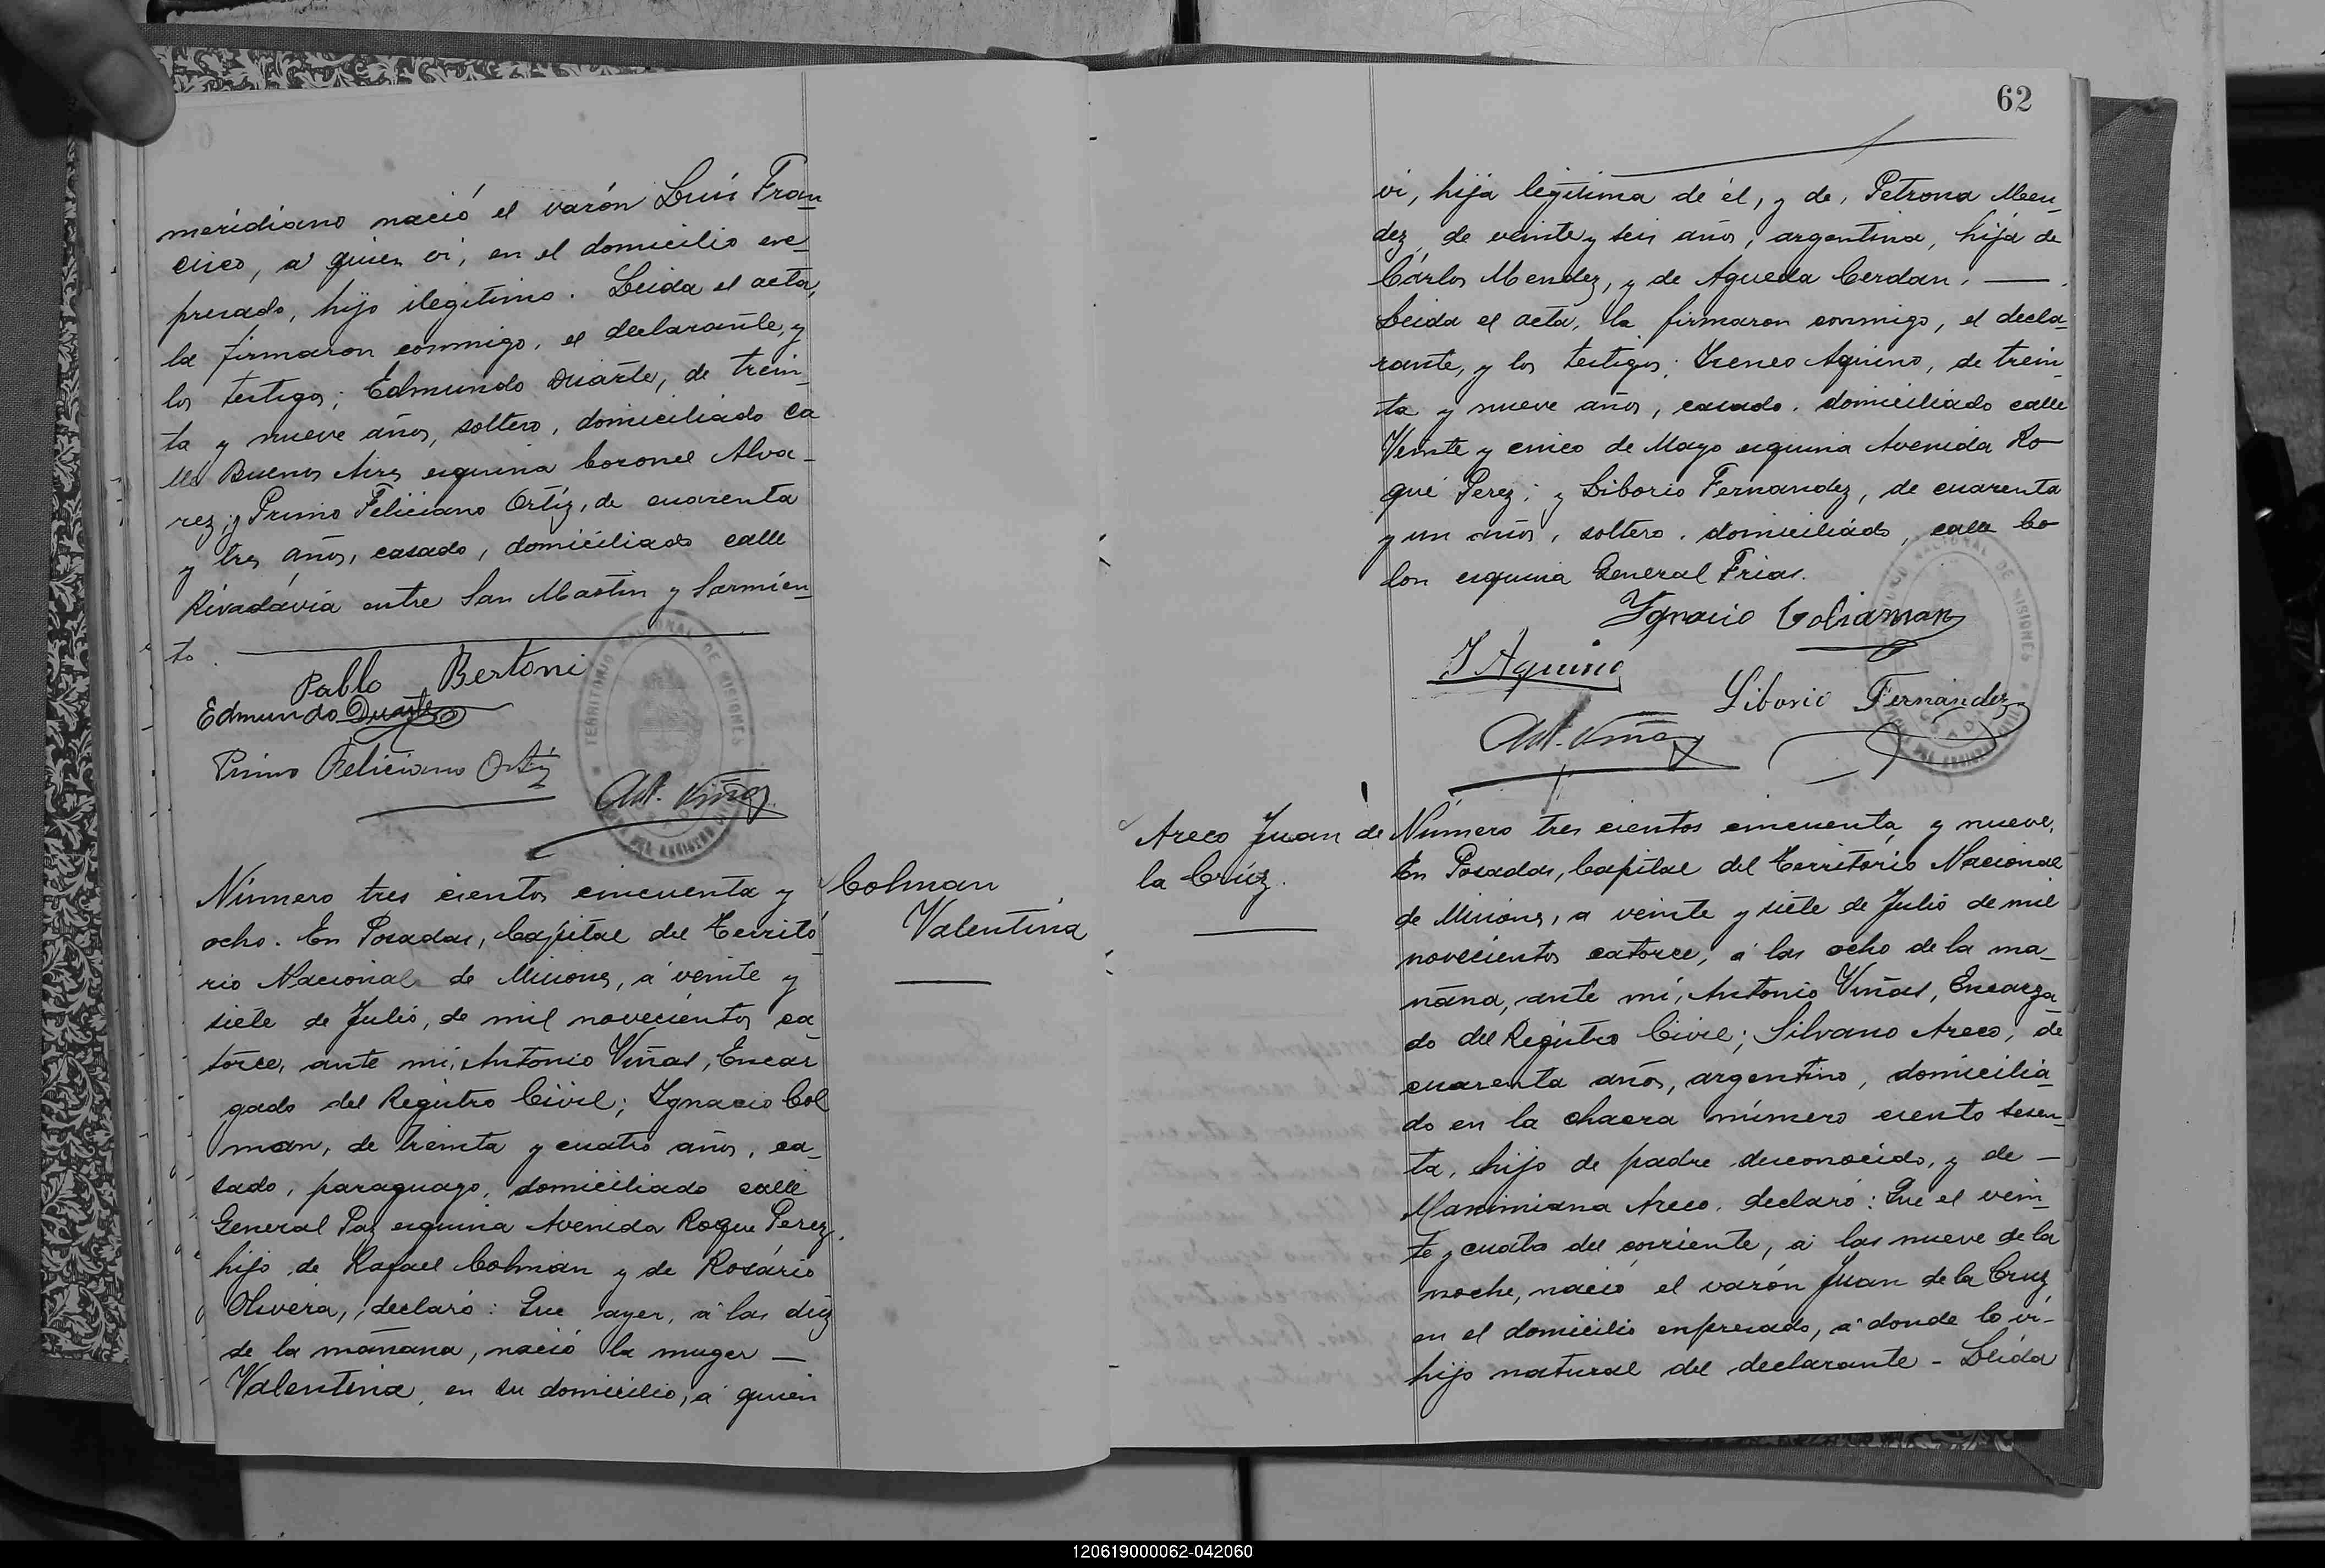 meridiano nació el varón Luis Fran_
cisco, a quien vi, en el domicilio ex_
presado, hijo ilegitimo. Leida el acta,
la firmaron conmigo, el declarante, y
los testigos; Edmundo Duarte, de trein_
ta y nueve años, soltero, domiciliado ca
lle Buenos Aires esquina Coronel Alva_
rez; y Primo Feliciano Ortíz, de cuarenta
y tres años, casado, domiciliado calle
Rivadávia entre San Martin y Sarmien_
to.
Pablo Bertoni
Edmundo Duarte
Primo Feliciano Ortíz
Ant. Viñas
TERRITORIO NACIONAL DE MISIONES
Número tres cientos cincuenta y
ocho. En Posadas, Capital del Territó
rio Nacional de Misiones, a veinte y
siete de Julio, de mil novecientos ca_
torce, ante mi, Antonio Viñas, Encar
gado del Registro Civil; Ygnacio Col
man, de treinta y cuatro años, ca_
sado, paraguayo, domiciliado calle
General Paz esquina Avenida Roque Perez,
hijo de Rafael Colman y de Rosário
Olivera, declaró: Que ayer, a las diez
de la mañana, nació la muger _
Valentina, en su domicilio, a quien
Colman
Valentina
62
vi, hija legitima de él, y de, Petrona Men_
dez, de veinte y seis años, argentina, hija de
Cárlos Mendez, y de Agueda Cerdan. —
Leida el acta, la firmaron conmigo, el decla_
rante, y los testigos; Ireneo Aquino, de trein_
ta y nueve años, casado, domiciliado calle
Veinte y cinco de Mayo esquina Avenida Ro
que Perez; y Liborio Fernandez, de cuarenta
y un años, soltero, domiciliado, calle Co
lon esquina General Frias.
Ygnacio Colman
I Aquino
Liborio Fernández
Ant. Viñas
Areco Juan de
la Crúz.
Número tres cientos cincuenta y nueve,
En Posadas, Capital del Territorio Nacional
de Misiones, a veinte y siete de Julio de mil
novecientos catorce, a las ocho de la ma_
ñana, ante mi, Antonio Viñas, Encarga_
do del Registro Civil; Silvano Areco, de
cuarenta años, argentino, domicilia_
do en la chacra número ciento sesen_
ta, hijo de padre desconocido, y de —
Maximiana Areco, declaró: Que el vein_
te y cuatro del corriente, a las nueve de la
noche, nació el varón Juan de la Cruz,
en el domicilio expresado, a donde lo vi-
hijo natural del declarante - Leida
120619000062-042060